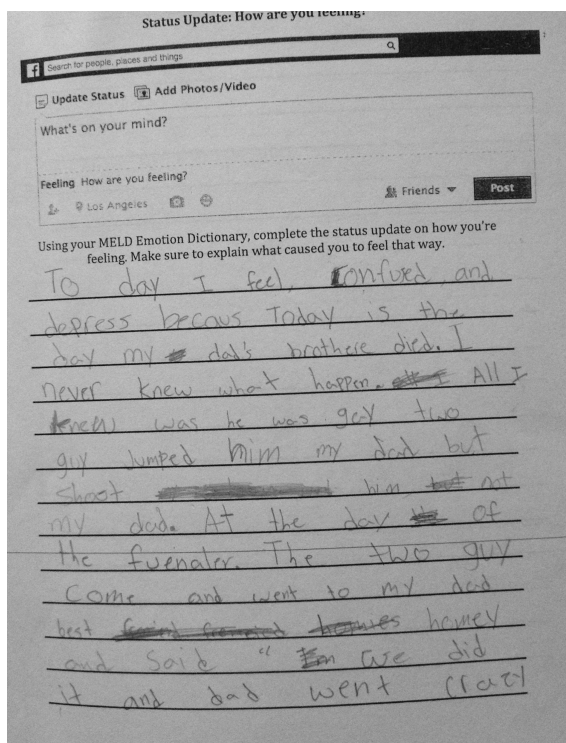 Status Update: How are you feeling?
f Search for people, places and things
Update Status Add Photos/Video
What's on your mind?
Feeling How are you feeling?
Los Angeles Friends Post
Using your MELD Emotion Dictionary, complete the status update on how you're
feeling. Make sure to explain what caused you to feel that way.
To day I feel, confused and
depress becaus Today is the
day my dad's brothere died. I
never knew what happen. All I
knew was he was gay two
guy Jumped him my dad but
shoot him not
my dad. At the day of
the fuenaler. The two guy
come and went to my dad
best homey
and said " we did
it and dad went crazy